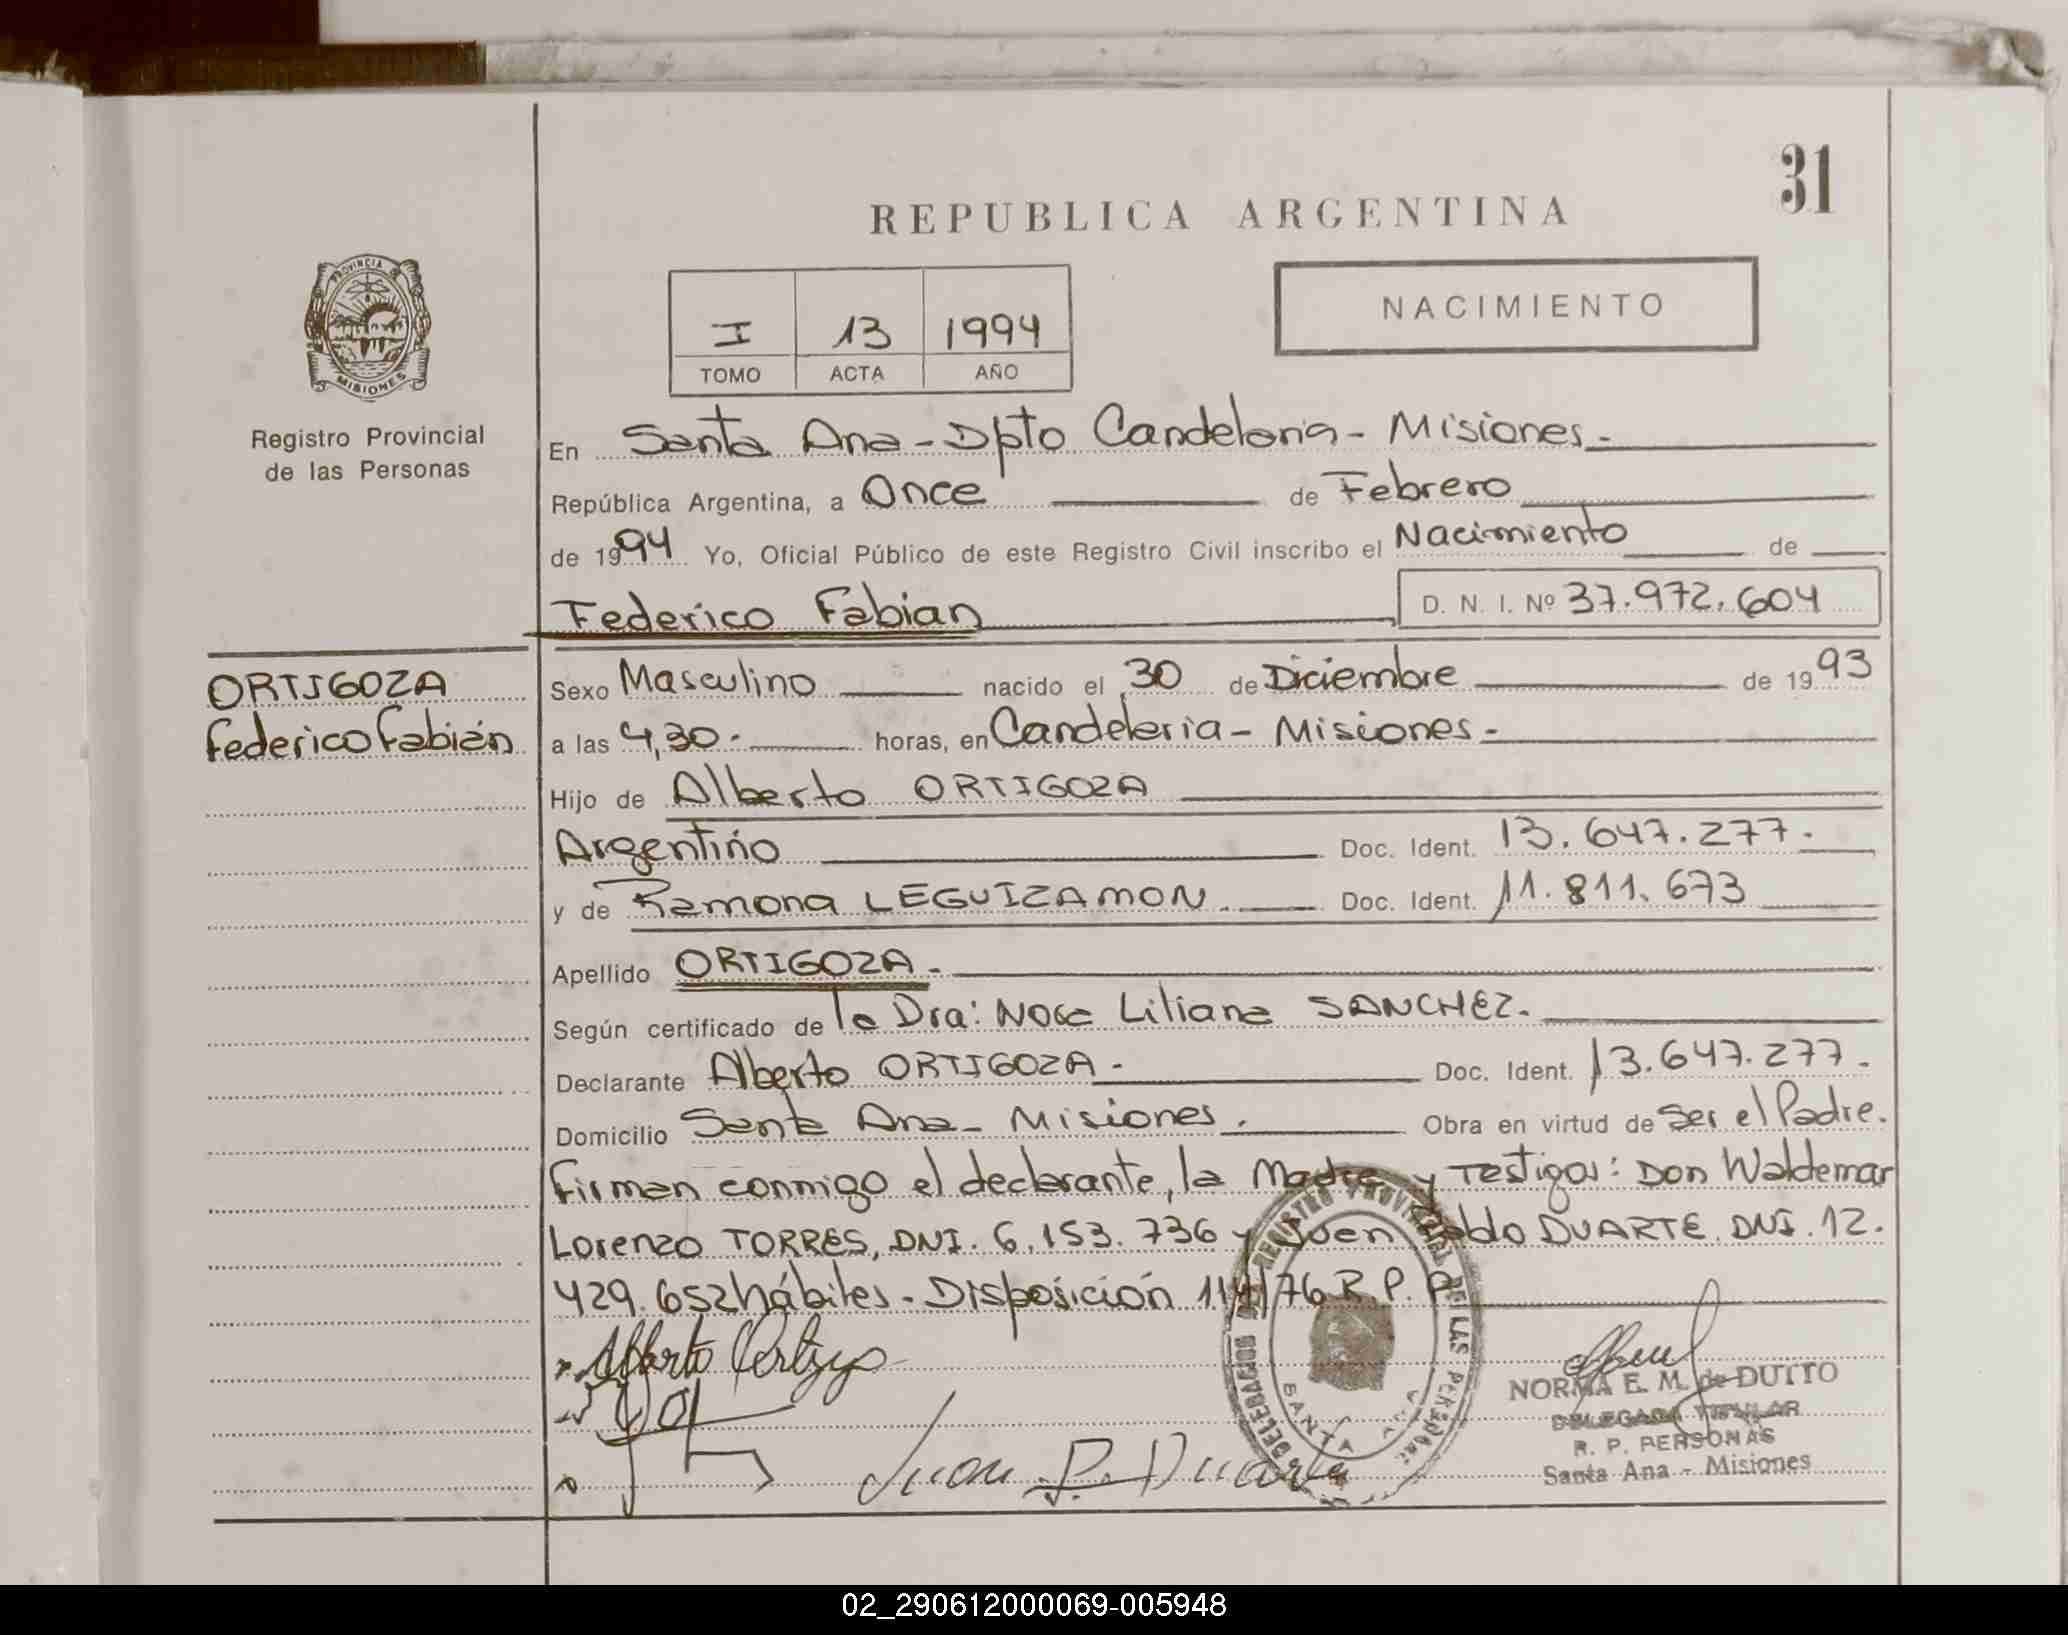 31
REPUBLICA ARGENTINA
NACIMIENTO
I 13 1994
TOMO ACTA AÑO
PROVINCIA
MISIONES
Registro Provincial
de las Personas
En Santa Ana - Dpto Candelaria - Misiones.-
República Argentina, a Once de Febrero
de 1994 Yo, Oficial Público de este Registro Civil inscribo el Nacimiento de
Federico Fabian D. N. I. Nº 37.972.604
ORTIGOZA
Federico Fabián
Sexo Masculino nacido el 30 de Diciembre de 1993
a las 4,30.- horas, en Candelaria - Misiones.-
Hijo de Alberto ORTIGOZA
Argentino Doc. Ident. 13.647.277.-
y de Ramona LEGUIZAMON.- Doc. Ident. 11.811.673
Apellido ORTIGOZA.-
Según certificado de la Dra: Liliana SANCHEZ.-
Declarante Alberto ORTIGOZA.- Doc. Ident. 13.647.277.-
Domicilio Santa Ana - Misiones.- Obra en virtud de Ser el Padre.
Firman conmigo el declarante, la Madre y Testigos: Don Waldemar
Lorenzo TORRES, DNI. 6.153.736 y Juan DUARTE. DNI. 12.
429.652 hábiles.- Disposición /76 R.P.P.
Alberto Ortigoza
Juan P. Duarte
REGISTRO PROVINCIAL DE LAS PERSONAS
SANTA
NORMA E. M. de DUTTO
DELEGADA TITULAR
R. P. PERSONAS
Santa Ana - Misiones
02_290612000069-005948